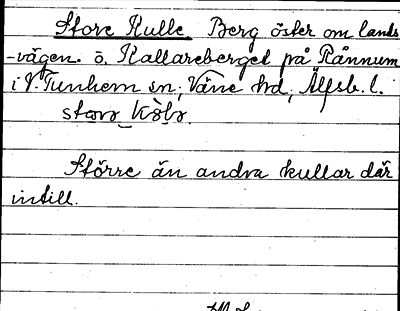 Store Kulle Berg öster om lands
-vägen. ö. Kallareberget på Rånnum
i V. Tunhem sn; Väne hd, Älfsb. l.
Större än andra kullar där
intill.